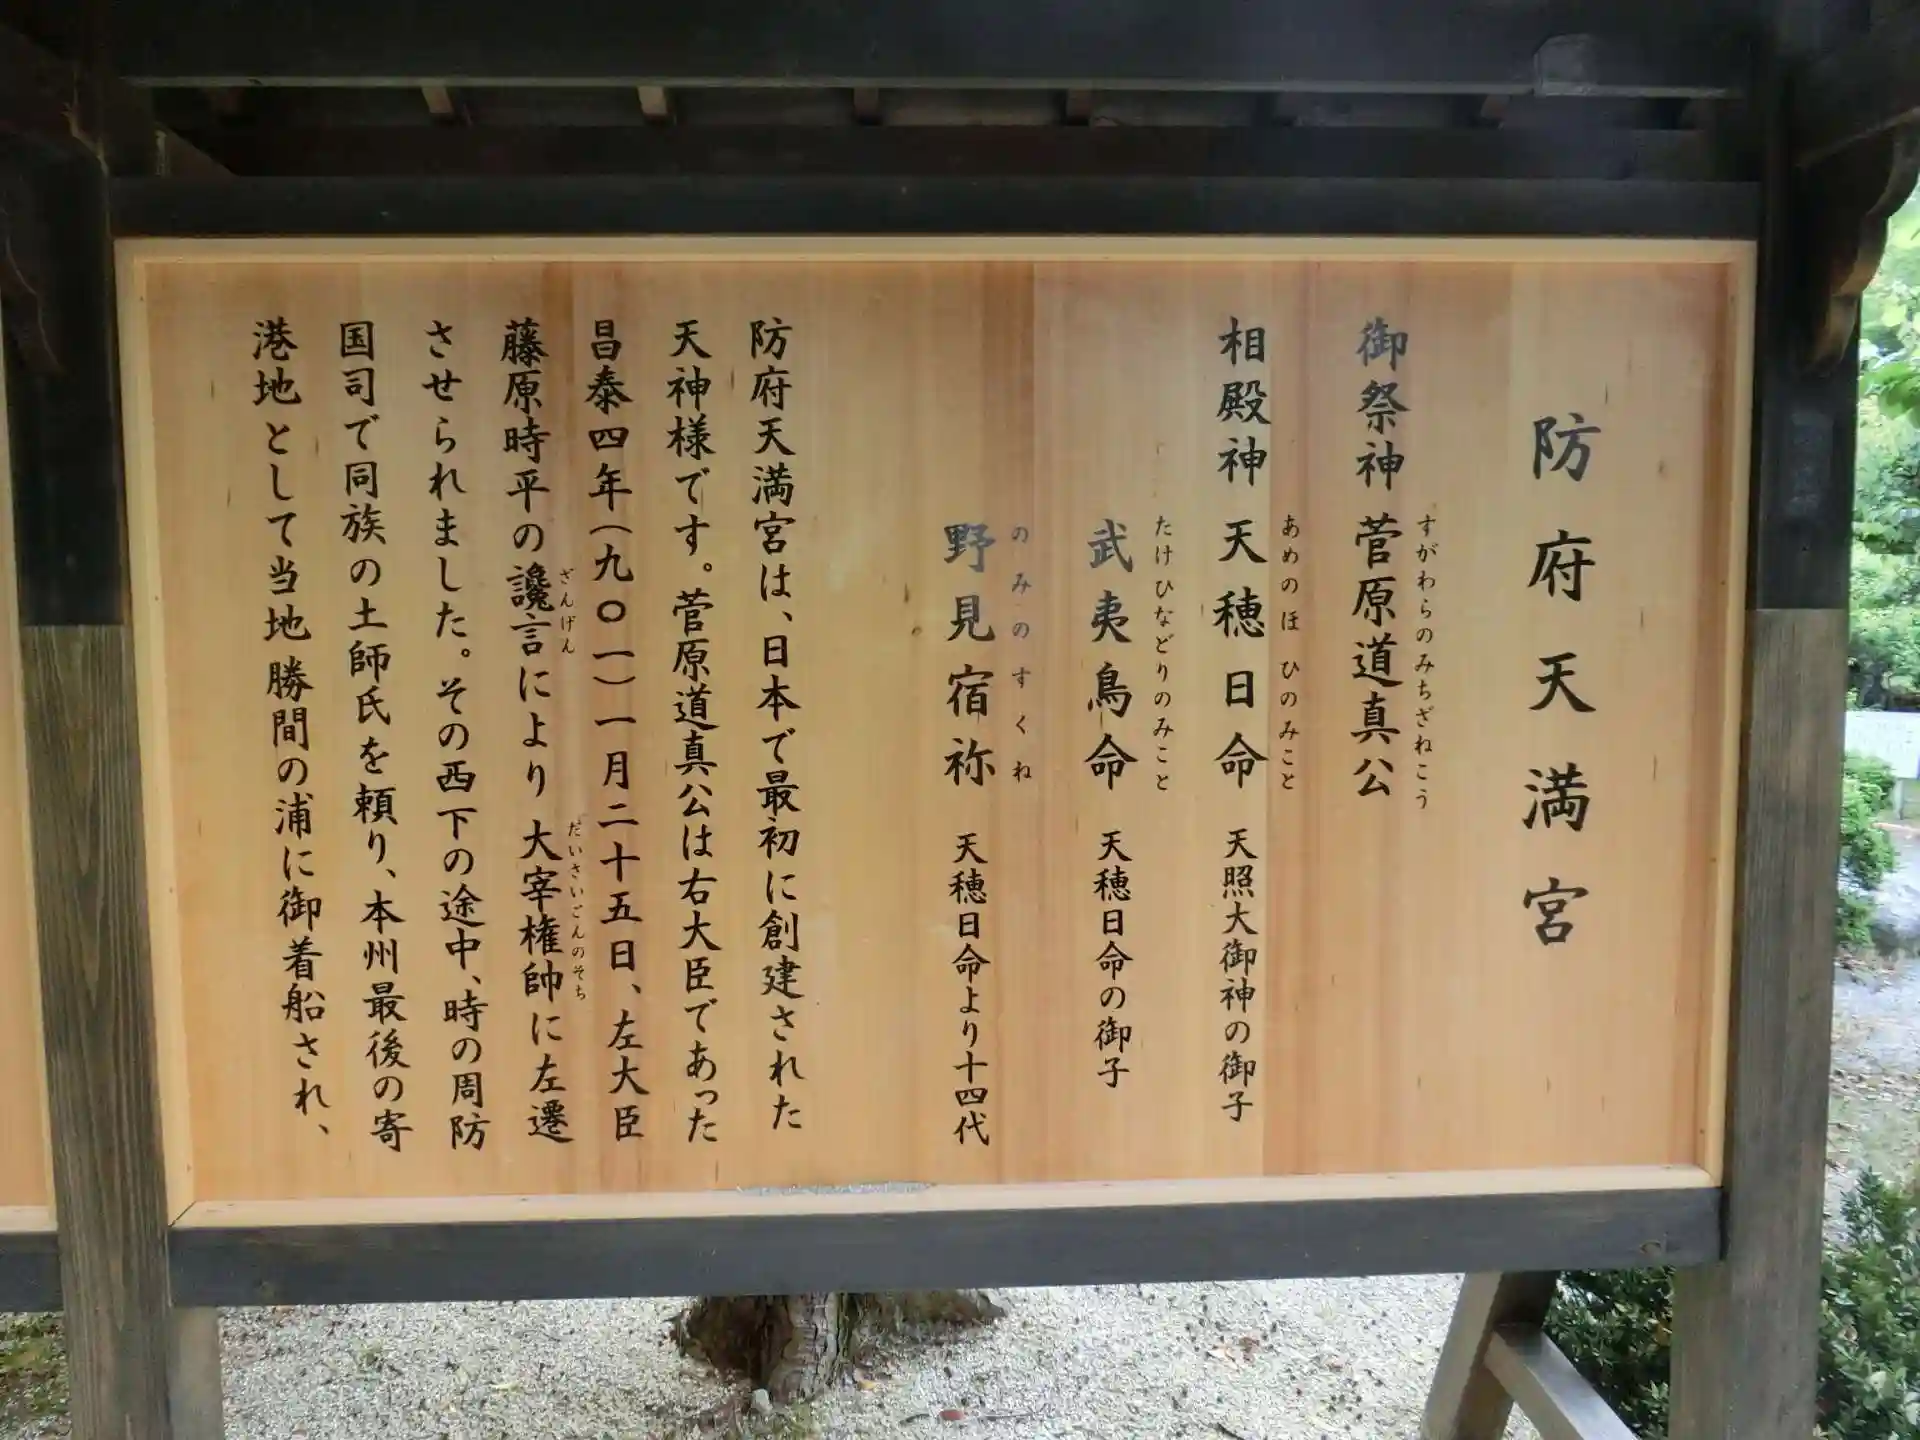 防府天満宮
御祭神 菅原道真公
すがわらのみちざねこう
相殿神 天穂日命 天照大御神の御子
あめのほひのみこと
武夷鳥命 天穂日命の御子
たけひなどりのみこと
野見宿祢 天穂日命より十四代
のみのすくね
防府天満宮は、日本で最初に創建された
天神様です。菅原道真公は右大臣であった
昌泰四年(九〇一)一月二十五日、左大臣
藤原時平の讒言により大宰権帥に左遷
ざんげん だいさいごんのそち
させられました。その西下の途中、時の周防
国司で同族の土師氏を頼り、本州最後の寄
港地として当地勝間の浦に御着船され、